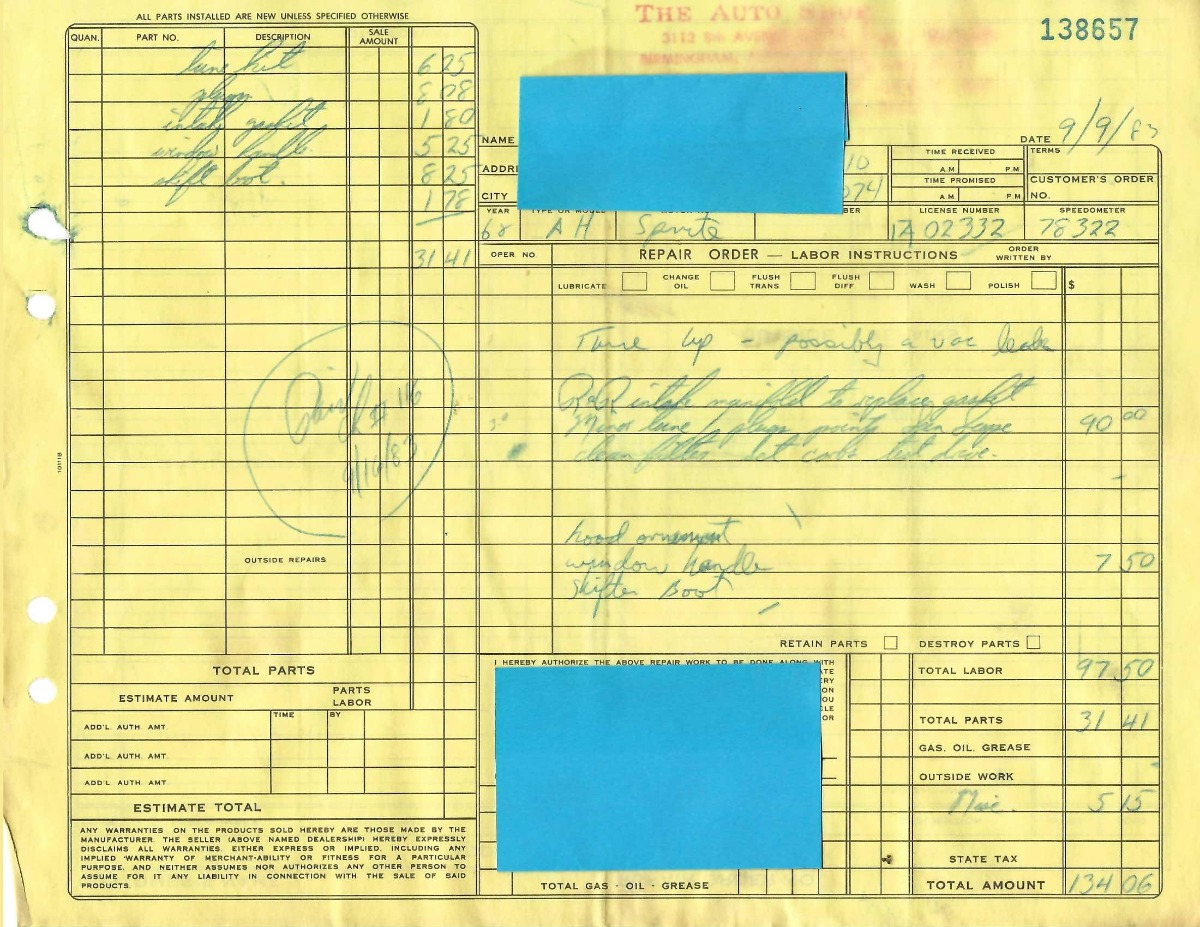 ALL PARTS INSTALLED ARE NEW UNLESS SPECIFIED OTHERWISE
THE AUTO SHOP
3112 8th AVEN
BIRMINGHAM,
138657
QUAN. PART NO. DESCRIPTION SALE AMOUNT
tune kit 6 25
plugs 8 08
intake gasket 1 80
window handle 5 25
shift boot. 8 25
1 78
31 41
NAME
DATE 9/9/83
ADDRE
10
TIME RECEIVED
A.M P.M
TERMS
CITY
074
TIME PROMISED
A.M P.M
CUSTOMER'S ORDER NO.
YEAR TYPE OR MODEL BER LICENSE NUMBER SPEEDOMETER
68 AH Sprite 1A 02332 78322
OPER NO REPAIR ORDER — LABOR INSTRUCTIONS ORDER WRITTEN BY
LUBRICATE CHANGE OIL FLUSH TRANS FLUSH DIFF WASH POLISH $
Tune up - possibly a vac leak
R&R intake manifold to replace gasket
Minor tune / plugs points 90 00
clean filters set carbs test drive.
Paid
ck # 116
9/16/83
hood ornament
window handle 7 50
shifter Boot
OUTSIDE REPAIRS
RETAIN PARTS DESTROY PARTS
TOTAL PARTS
ESTIMATE AMOUNT PARTS LABOR
TIME BY
ADD'L AUTH. AMT
ADD'L AUTH. AMT
ADD'L AUTH. AMT
ESTIMATE TOTAL
ANY WARRANTIES ON THE PRODUCTS SOLD HEREBY ARE THOSE MADE BY THE
MANUFACTURER. THE SELLER (ABOVE NAMED DEALERSHIP) HEREBY EXPRESSLY
DISCLAIMS ALL WARRANTIES, EITHER EXPRESS OR IMPLIED, INCLUDING ANY
IMPLIED WARRANTY OF MERCHANT-ABILITY OR FITNESS FOR A PARTICULAR
PURPOSE, AND NEITHER ASSUMES NOR AUTHORIZES ANY OTHER PERSON TO
ASSUME FOR IT ANY LIABILITY IN CONNECTION WITH THE SALE OF SAID
PRODUCTS.
101118
I HEREBY AUTHORIZE THE ABOVE REPAIR WORK TO BE DONE ALONG WITH
ATE
ERY
ON
OU
CLE
OR
TOTAL GAS - OIL - GREASE
TOTAL LABOR 97 50
TOTAL PARTS 31 41
GAS, OIL, GREASE
OUTSIDE WORK
Misc. 5 15
STATE TAX
TOTAL AMOUNT 134 06